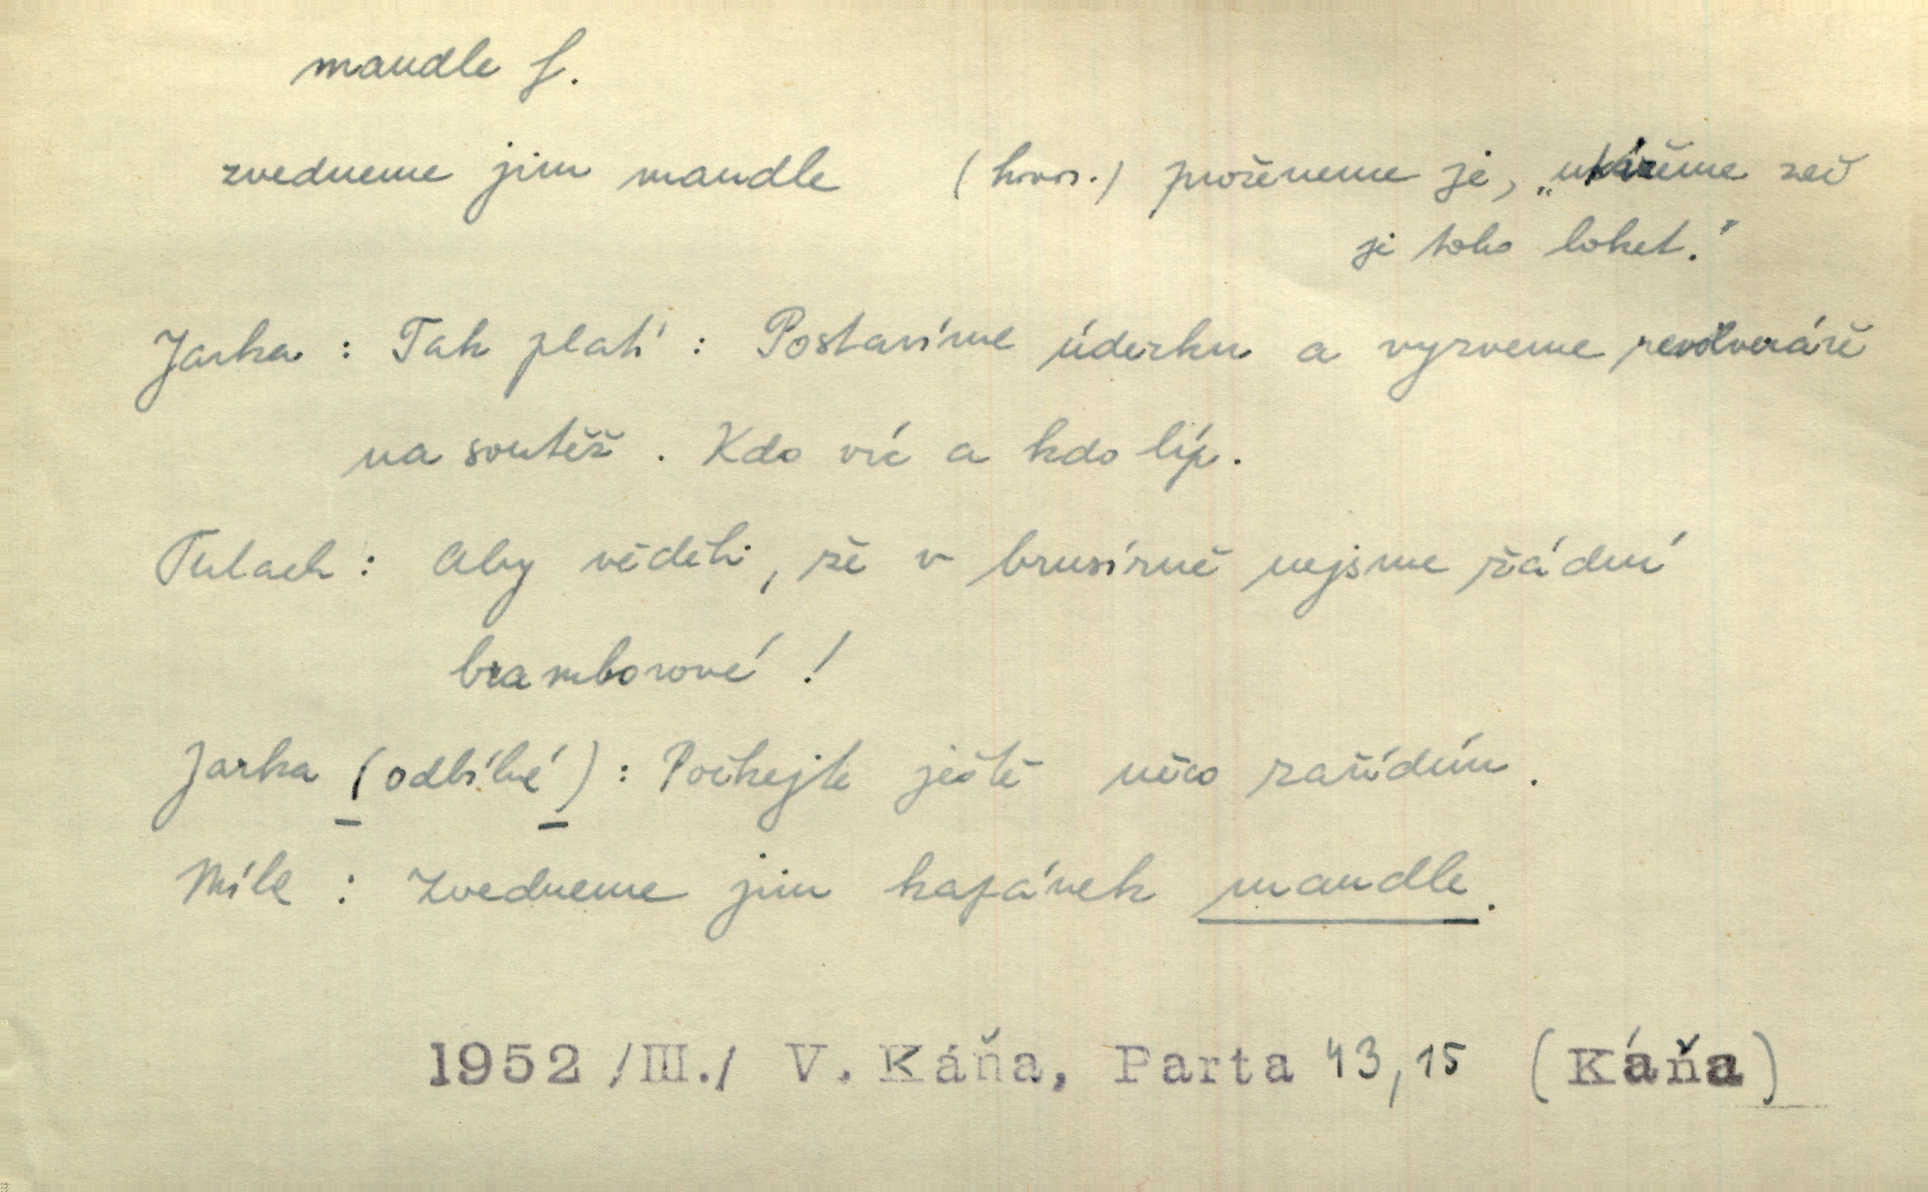 mandle f.
zvedneme jim mandle (hovor.) proženeme je, „ukážeme zač
je toho loket."
Jarka : Tak platí : Postavíme úderku a vyzveme revolveráře
na soutěž . Kdo víc a kdo líp.
Tulach : Aby věděli, že v brusírně nejsme žádní
bramborové !
Jarka (odbíhá) : Počkejte ještě něco zařídím.
Míla : Zvedneme jim kapánek mandle.
1952 /III./ V. Káňa, Parta 43,15 (Káňa)